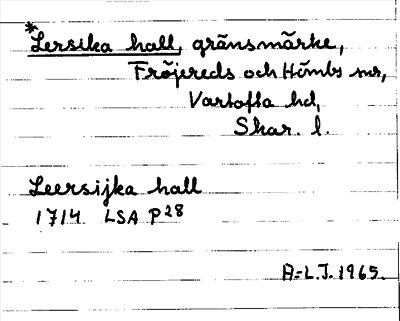 *Lersika hall, gränsmärke,
Fröjereds och Hömbs snr,
Vartofta hd,
Skar. l.
Leersijka hall
1714 LSA P28
A-L.J. 1965.